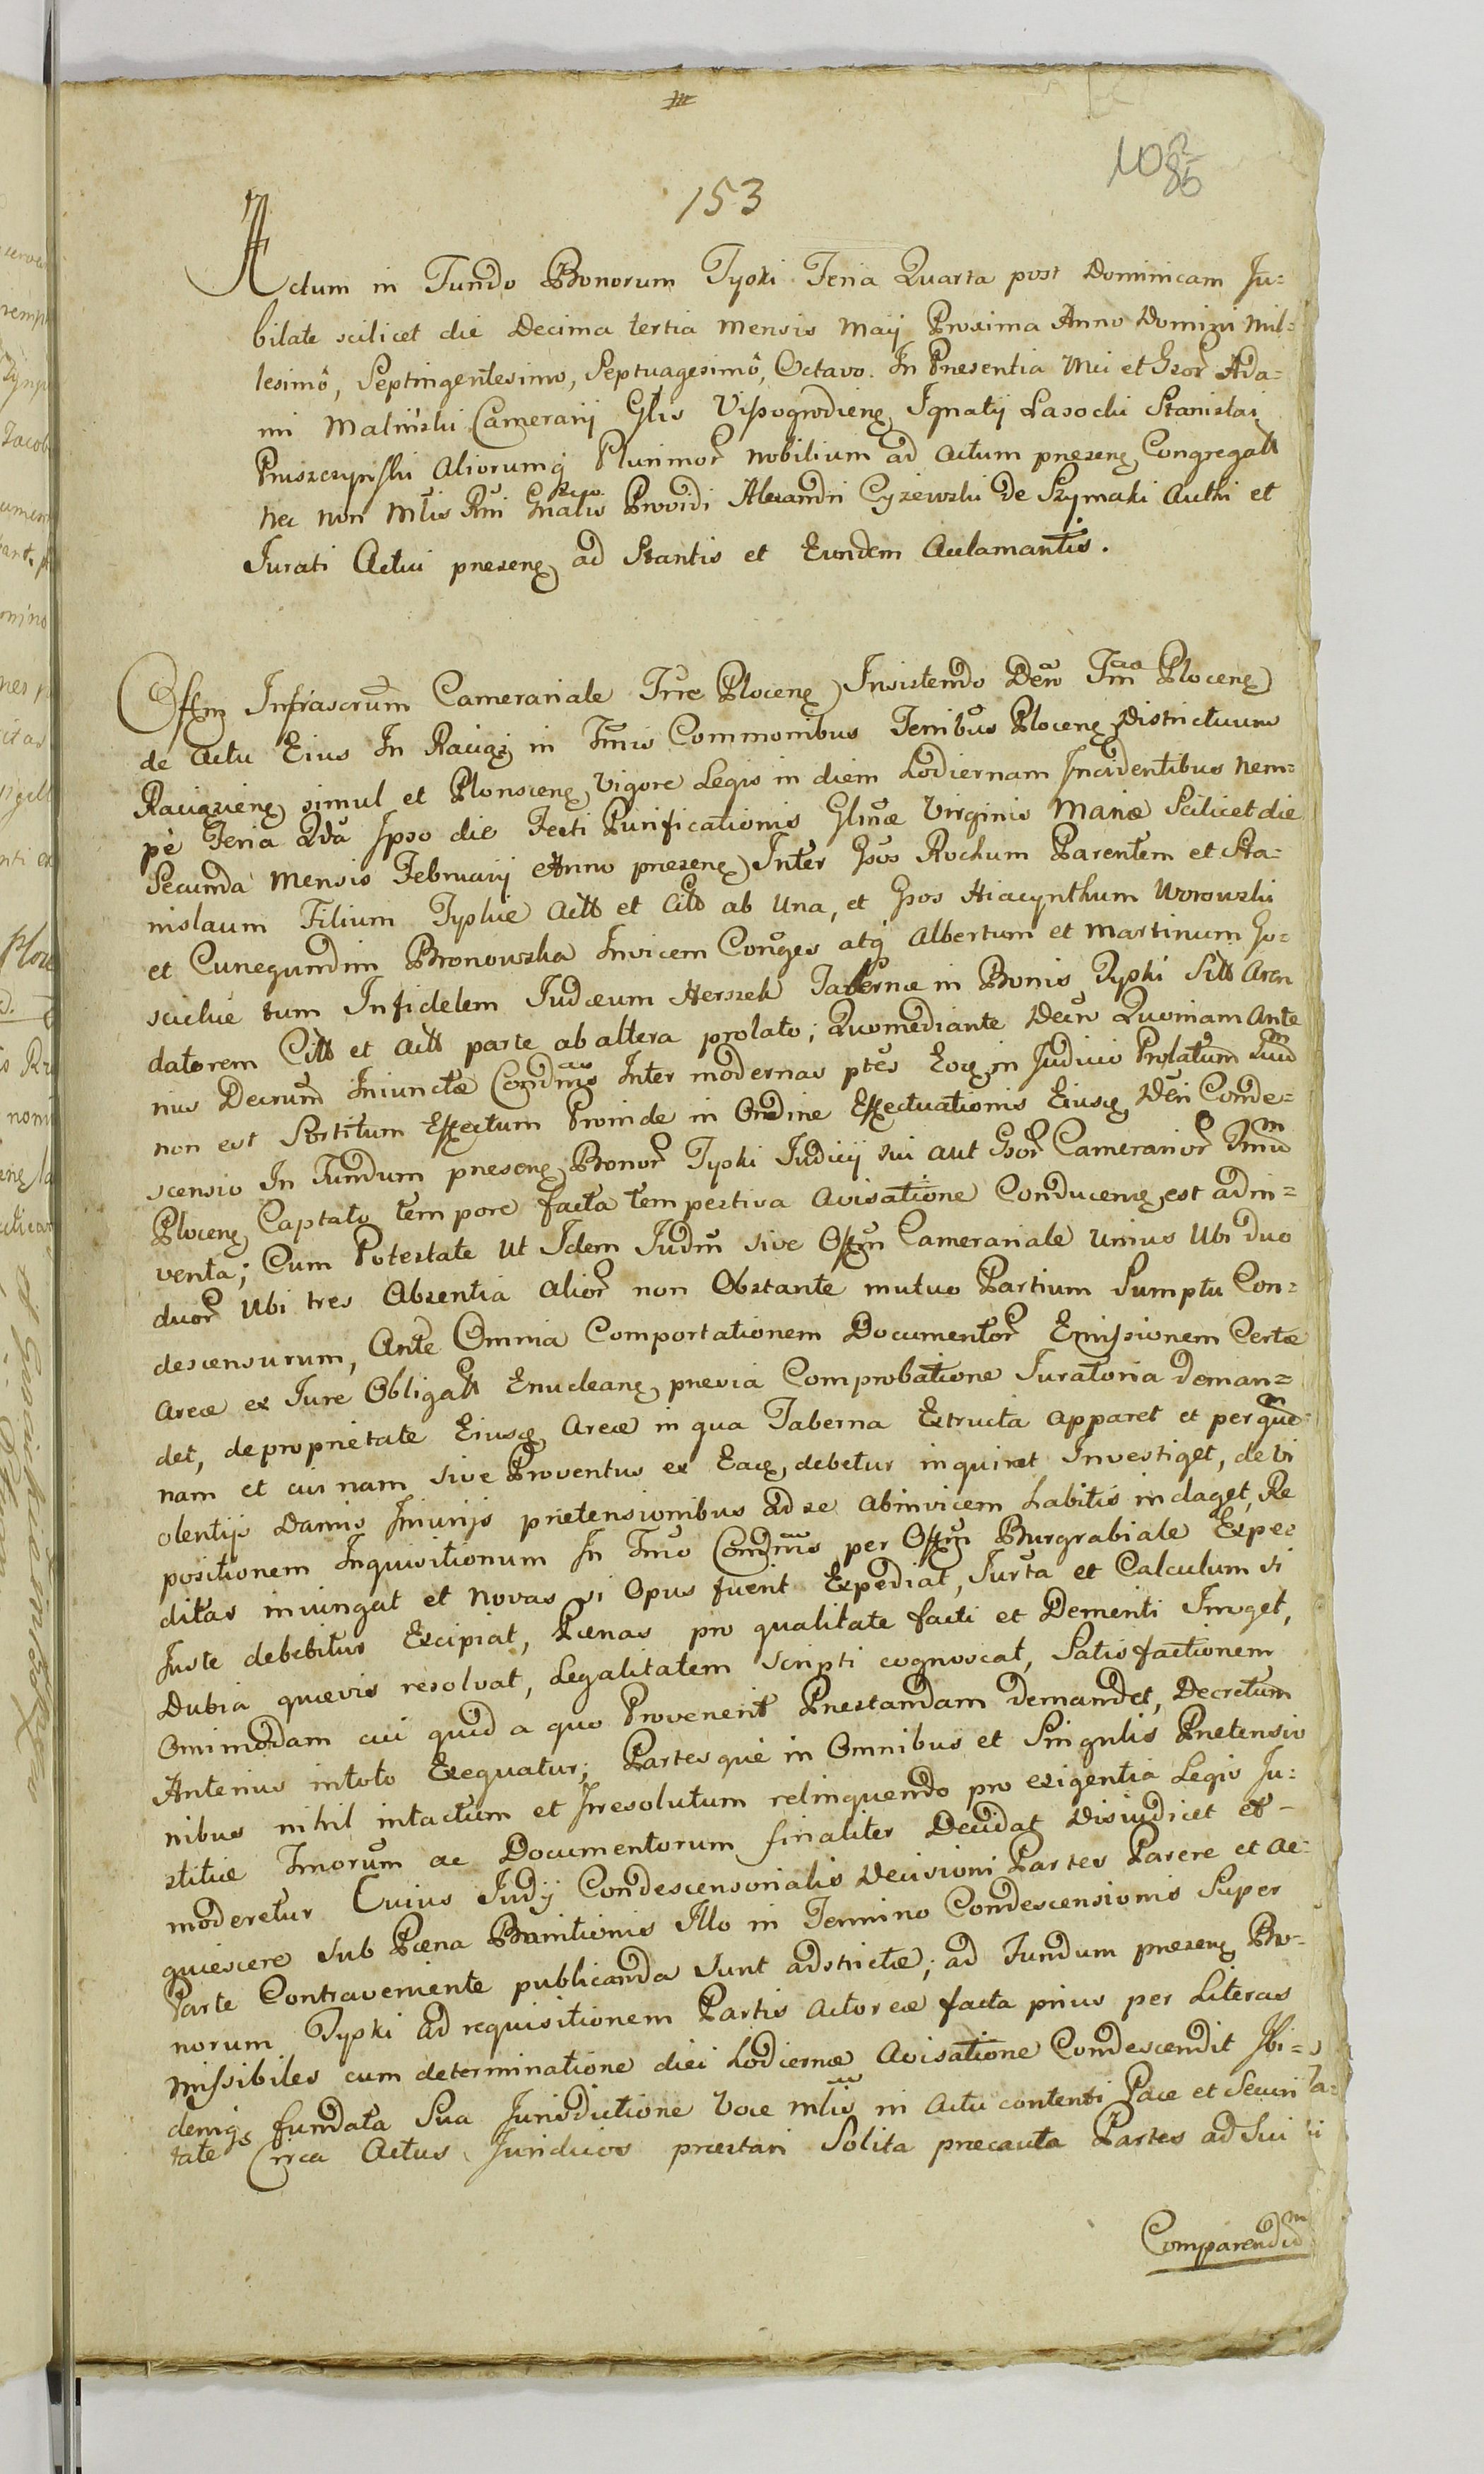 108
86
153
Actum in Fundo Bonorum Tyski Feria Quarta post Dominicam Ju=
bilate scilicet die Decima tertia mensis maij Proxima Anno Domini mil=
lesimô, Septingentesimo, Septuagesimô, Octavo. In Presentia Mei et Gsor Ada=
mi Malinski Camerarij Gtis Vissogrodien Ignatij Lasocki Stanislai
Pruszczynski Aliorumq Plurimor nobilium ad actum presen Congregatt
nec non Mtis Rni Gnalis Providi Alexandri Cyzewski de Szymaki Authi et
Jurati Actui presen ad Stantis et Eundem Aclamantis.
Offm Infrascrum Camerariale Trre Plocen Insistendo Deo Tm Plocen
de actu Eius In Raciąż in Tmis Commonibus Terribus Plocen Districtuum
Raciązien simul et Plonscen vigore Legis in diem hodiernam Incidentibus nem=
pè Feria 2da Ipso die Festi Purificationis Glinæ Virginis Mariæ Scilicet die
Secunda Mensis Februarij Anno presen Inter Gsos Rochum Parentem et Sta=
nislaum Filium Tyskie Actt et Citt ab Una, et Gsos Hiacynthum Worowski
et Cunegundim Bronowska Invicem Conges atq Albertum et Martinum Go=
scickie tum Infidelem Judæum Herszek Tabernæ in Bonis Tyski Sitt Aren
datorem Citt et actt parte ab altera prolato; Quomediante Deo Quoniam Ante
rius Decrum Iniunctæ Condnis Inter modernas ptes Eoq in Judicio Prolatum Suum
non est Sortitum Effectum Proinde in Ordine Effectuationis Eiusq Dei Conde=
scensio In Fundum presens Bonor Tyski Judicij sui aut Gsor Camerarior Tmum
Plocen Captato tempore facta tempestiva avisatione Conducen est adin=
venta; Cum Potestate ut Idem Judm sive Offm Camerariale unius ubi duo
duor ubi tres Absentia alior non Obstante mutuo Partium Sumptu Con=
descensurum, Ante Omnia Comportationem Documentor Emissionem Certæ
areæ ex Jure Obligatt Enuclean previa Comprobatione Juratoria deman=
det, de proprietate Eiusq areæ in qua Taberna Extructa apparet et per quem
nam et cui nam sive Proventus ex Eaq debetur inquirat Investiget, de vi
olentijs Damis Iniurijs prætensionibus ad se abinvicem habitis indaget, Re
positionem Inquisitionum In Tmo Condnis per Offm Burgrabiale Expe
ditas iniungat et novas si Opus fuerit Expediat, Jurta et Calculum si
Juste debebitur Excipiat, Pænas pro qualitate facti et Dementi Irroget,
Dubia quævis resolvat, Legalitatem scripti cognoscat, Satisfactionem
omimodam cui quid a quo Provenerit Prestandam demandet, Decretum
Anterius in toto Exequatur; Partesque in Omnibus et Singulis Pretensio
nibus nihil intactum et Irresolutum relinquendo pro exigentia Legis Ju=
stitiæ Tmorum ac Documentorum finaliter Decidat Disiudicet et
moderetur Cuius Judij Condescensorialis Decisioni Partes Parere et ac=
quiescere sub Pæna Banitionis Illo in Termino Condescensionis Super
Parte Contraveniente publicanda sunt adstrictæ; ad Fundum presens Bo=
norum Tyski ad requisitionem Partis actoreæ facta prius per Literas
missibiles cum determinatione diei hodiernæ Avisatione Condescendit Ibi=
demq fundata Sua Jurisdictione Voce Mtis in actu contenti Pace et Securi
tate Circa Actus Juridicos præstari Solita præcauta Partes ad sui
Comparendum